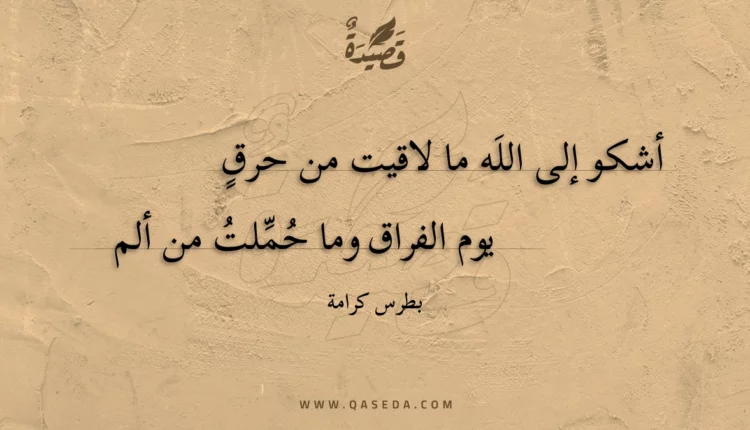 قَصِيدَةٌ
أشكو إلى اللَه ما لاقيت من حرقٍ
يوم الفراق وما حُمِّلتُ من ألم
بطرس كرامة
WWW.QASEDA.COM